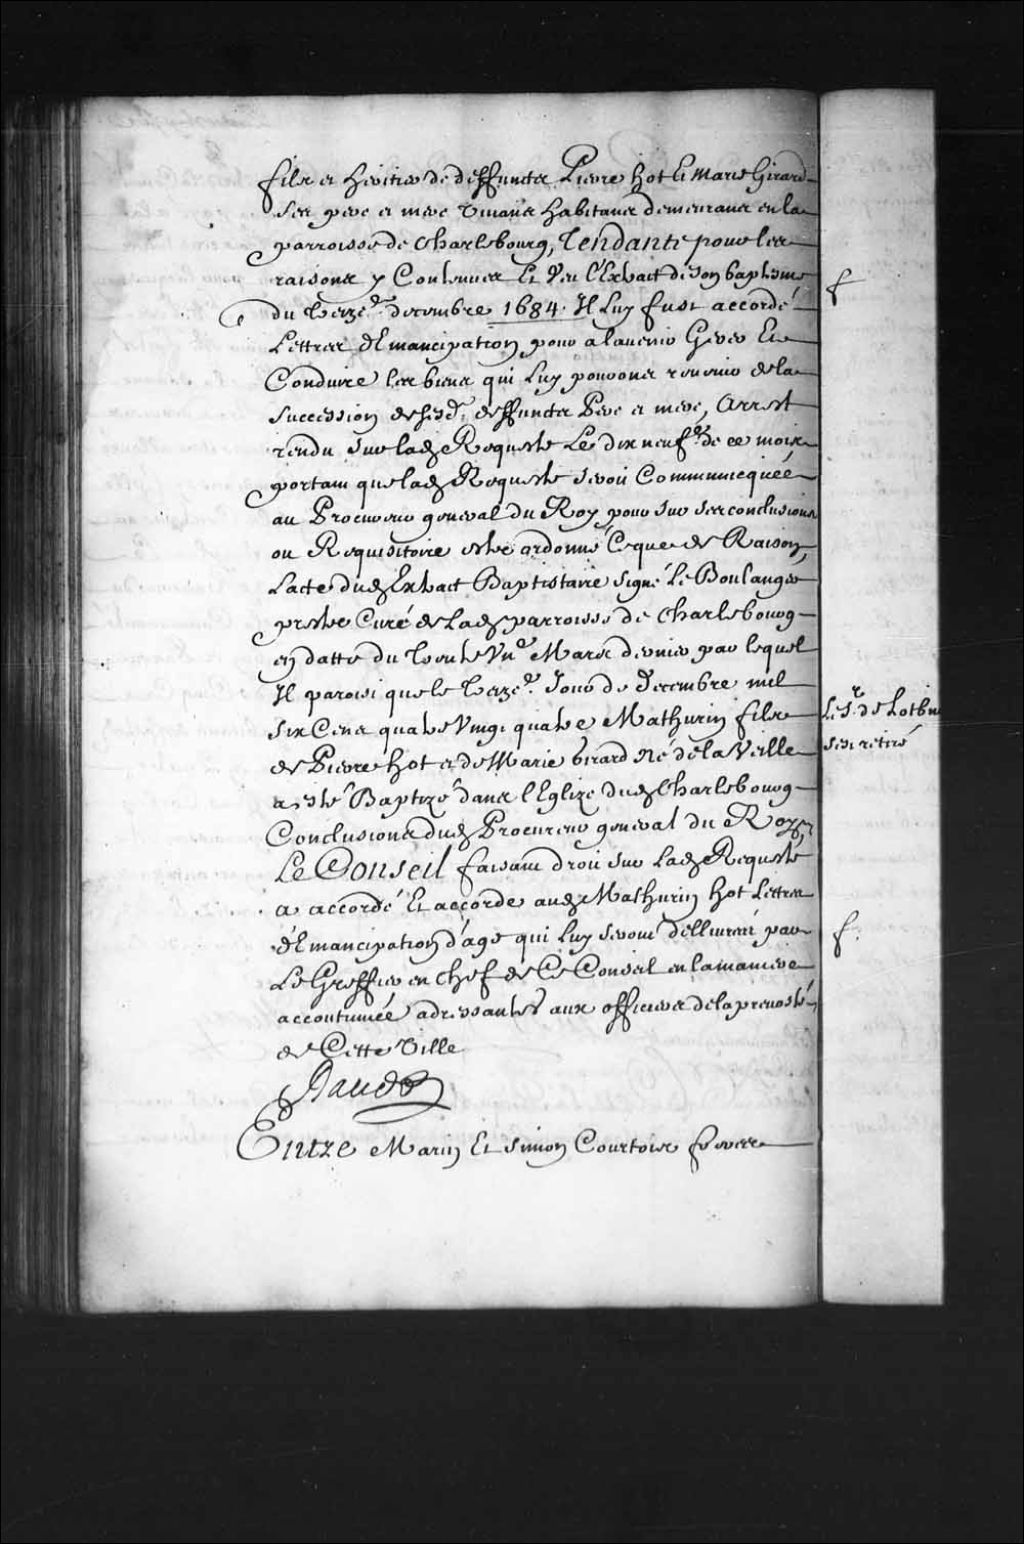 fils et heritier de deffuncts Pierre hot Et Marie Girard
ses pere et mere vivans habitans demeurans en la
parroisse de Charlebourg, Tendante pour les
raisons y Contenues Et Veu l'Extrait de son baptesme
du treize.e decembre 1684. Il Luy fust accordé
Lettres d'Emancipation pour a lavenir Gerer Et
Conduire les biens qui Luy pouvoient revenir de la
succession de sesd. deffuncts Pere et mere, Arrest
rendu sur lad. Requeste Le dix neuf.e de ce mois
portant que lad. Requeste seroit Communicquée
au Procureur general du Roy pour sur ses conclusions
ou Requisitoire estre ordonné Ce que de Raison,
Lacte dud. Extrait Baptistaire signé Le Boulanger
prestre Curé de Lad. parroisse de Charlebourg
en datte du trente Vn.e Mars dernier par lequel
Il paroist que le treize.e Jour de Decembre mil
six Cens quatre Vingt quatre Mathurin fils
de Pierre hot et de Marie Girard Né de la Veille
a esté Baptizé dans l'Eglize dud. Charlebourg
Conclusions dud. Procureur general du Roy,
Le Conseil faisant droit sur Lad. Requeste
a accordé Et accorde aud. Mathurin hot Lettres
d'Emancipation d'age qui Luy seront dellivreés par
Le Greffier en chef de Ce Conseil en la maniere
accoutumeé adressantes aux officiers de la prevosté
de Cette Ville
Raudot
Entre Marin Et Simon Courtois freres
Le S.r de Lotbin
sest retiré